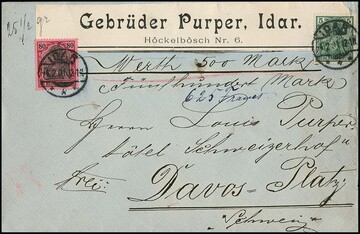 25 1/2 gr
Gebrüder Purper, Idar.
Höckelbösch Nr. 6.
80 80
5
IDAR
IDAR
Werth 500 Mark
Fünfhundert Mark
625 francs
Herrn Louis Purper
Hôtel Schweizerhof
frei:
Davos-Platz
Schweiz